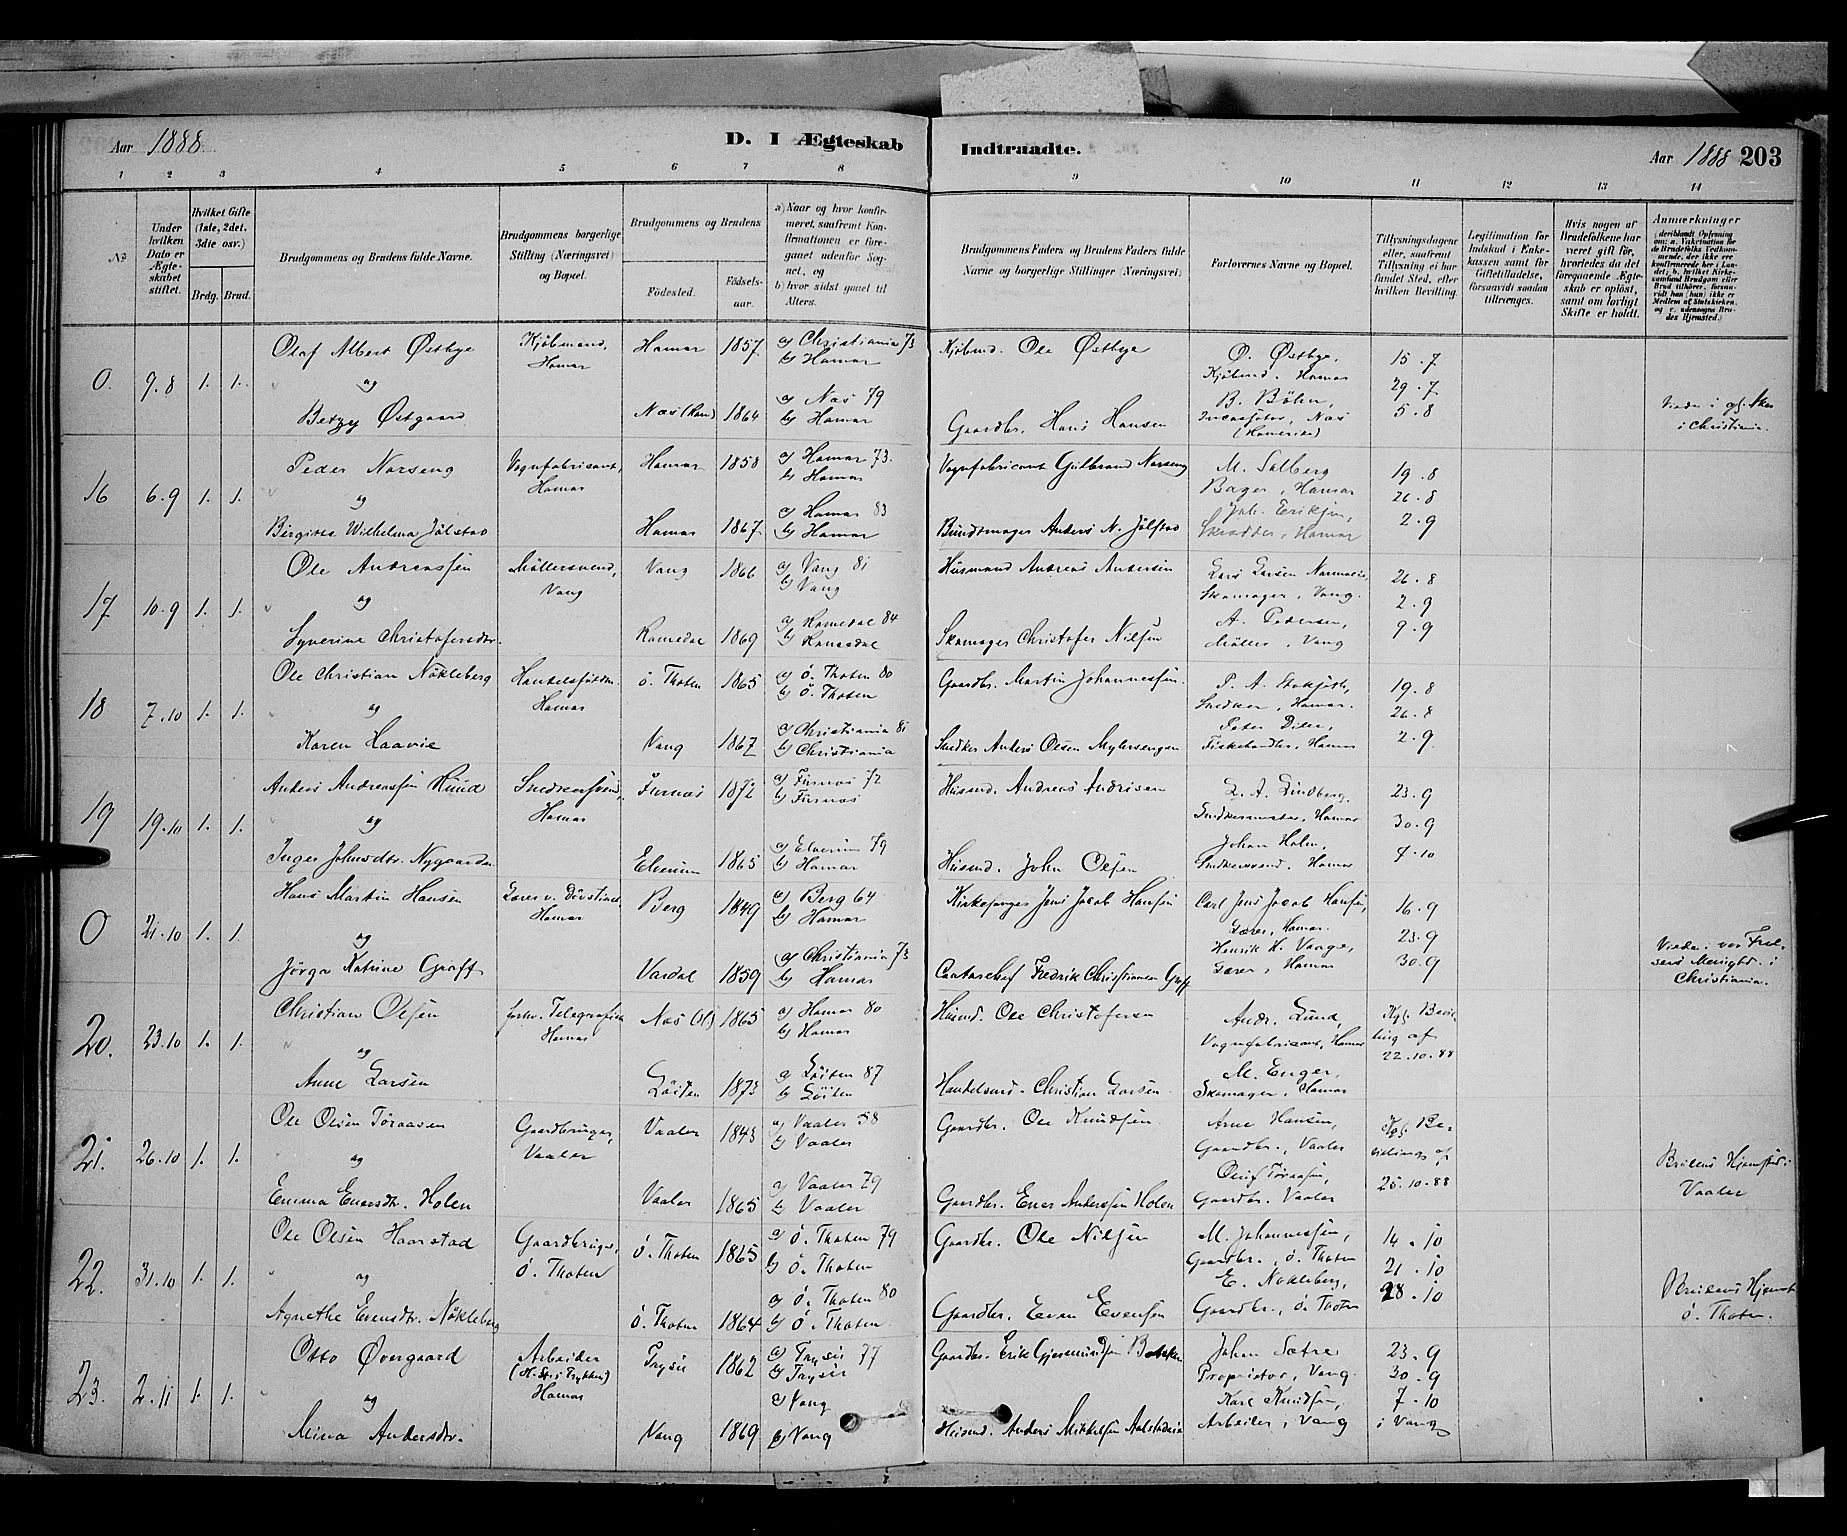 Aar 1888. D. I Ægteskab Indtraadte. Aar 1888 203
1 2 3 4 5 6 7 8 9 10 11 12 13 14
No
Under hvilken Dato er Ægteskabet stiftet.
Hvilket Gifte (1ste, 2det, 3die osv.)
Brdg. Brud.
Brudgommens og Brudens fulde Navne.
Brudgommens borgerlige Stilling (Næringsvei) og Bopæl.
Brudgommens og Brudens
Fødested.
Fødselsaar.
a) Naar og hvor konfirmeret, saafremt Konfirmationen er foregaaet udenfor Sognet, og
b) hvor sidst gaaet til Alters.
Brudgommens Faders og Brudens Faders fulde Navne og borgerlige Stillinger (Næringsvei)
Forlovernes Navne og Bopæl.
Tillysningsdagene eller, saafremt Tillysning ei har fundet Sted, efter hvilken Bevilling.
Legitimation for Indskud i Enkekassen samt for Giftetilladelse, forsaavidt saadan tiltrænges.
Hvis nogen af Brudefolkene har været gift før, hvorledes da det foregaaende Ægteskab er opløst, samt om lovligt Skifte er holdt.
Anmærkninger
0. 9.8 1. 1. Olaf Albert Østbye Kjøbmand, Hamar Hamar 1857 a) Christiania 73 b) Hamar Kjøbmd. Ole Østbye O. Østbye, Kjøbmd. Hamar 15.7
og 29.7
Betzy Østgaard Næs (Rom) 1864 a) Næs 79 b) Hamar Gaardbr. Hans Hansen B. Bøhn, Næs 5.8 i Christiania.
16 6.9 1. 1. Peder Narseng Vognfabricant, Hamar Hamar 1858 a) Hamar 73. b) Hamar Vognfabricant Gulbrand Narseng M. Solberg Bager, Hamar 19.8
og 26.8
Birgitte Wilhelma Jølstad Hamar 1867 a) Hamar 83 b) Hamar Bundtmager Anders N. Jølstad Joh. Eriksen, Skrædder, Hamar 2.9
17 10.9 1. 1. Ole Andreassen Møllersvend, Vang Vang 1866 a) Vang 81 b) Vang Husmand Andreas Andersen Lars Larsen Skomager, Vang. 26.8
og 2.9
Syverine Christofersdtr. Romedal 1869 a) Romedal 84 b) Romedal Skomager Christofer Nilsen A. Pedersen, Møller, Vang 9.9
18 7.10 1. 1. Ole Christian Nøkleberg Hamar Ø. Thoten 1865 a) Ø. Thoten 80 b) Ø. Thoten Gaardbr. Martin Johannessen. P. A. Snedker, Hamar. 19.8
og 26.8
Karen Haavie Vang 1867 a) Christiania 81 b) Christiania Snedker Anders Olsen Myhrsengen Peter Fiskehandler, Hamar 2.9
19 19.10 1. 1. Anders Andreassen Ruud Snedkersvend, Hamar Furnæs 1872 a) Furnæs 72 b) Furnæs Husmd. Andreas Andrisen L. A. Lindberg, Snedkermester, Hamar 23.9
og 30.9
Inger Johnsdtr. Nygaarden Elverum 1865 a) Elverum 79 b) Hamar Husmd. John Olsen Johan Holm, Snedkersvend, Hamar 7.10
0 21.10 1. 1. Hans Martin Hansen Lærer v. Døvstinst. Hamar Berg 1849 a) Berg 64 b) Hamar Kirkesanger Jens Jacob Hansen Carl Jens Jacob Hansen, Lærer, Hamar. 16.9
og 23.9
Jørga Katrine Graff Vardal 1859 a) Christiania 73 b) Hamar Fredrik Christiansen Graff Henrik K. Vaage, Lærer, Hamar 30.9 Viede i vor Frelsers Menighd. i Christiania.
20. 23.10 1. 1. Christian Olsen forhv. Telegrafist Hamar Næs 1865 a) Hamar 80 b) Hamar Husmd. Ole Christofersen Andr. Lund, Vognfabricant, Hamar Kgl. Bevilling af 22.10.88
og
Anne Larsen Løiten 1873 a) Løiten 87 b) Løiten Handelsmd. Christian Larsen M. Enger, Skomager, Hamar
21. 26.10 1. 1. Ole Olsen Toraasen Gaardbruger, Vaaler Vaaler 1843 a) Vaaler 58 b) Vaaler Gaardbr. Ole Knudsen Arne Hansen, Gaardbr., Vaaler Kgl. Bevilling af 25.10.88
og
Emma Enersdtr. Holen Vaaler 1865 a) Vaaler 79 b) Vaaler Gaardbr. Ener Anderssen Holen Oluf Toraasen, Gaardbr. Vaaler Brudens Hjemsted i Vaaler
22. 31.10 1. 1. Ole Olsen Haarstad Gaardbruger, Ø. Thoten Ø. Thoten 1865 a) Ø. Thoten 79 b) Ø. Thoten Gaardbr. Ole Nilsen M. Johannessen, Gaardbr., Ø. Thoten 14.10
og 21.10
Agnethe Evensdtr. Nøkleberg Ø. Thoten 1864 a) Ø. Thoten 80 b) Ø. Thoten Gaardbr. Even Evensen E. Nøkleberg, Gaardbr., Ø. Thoten 28.10 Brudens Hjemst. Ø. Thoten.
23. 2.11 1. 1. Otto Øvergaard Arbeider Hamar Trysil 1862 a) Trysil 77 b) Trysil Gaardbr. Erik Gjermundsen Johan Sætre Proprietær, Vang. 23.9
og 30.9
Mina Andersdtr. Vang 1869 a) Vang b) Vang Husmd. Anders Mikkelsen Karl Knudsen, Arbeider, Vang 7.10 i Vang